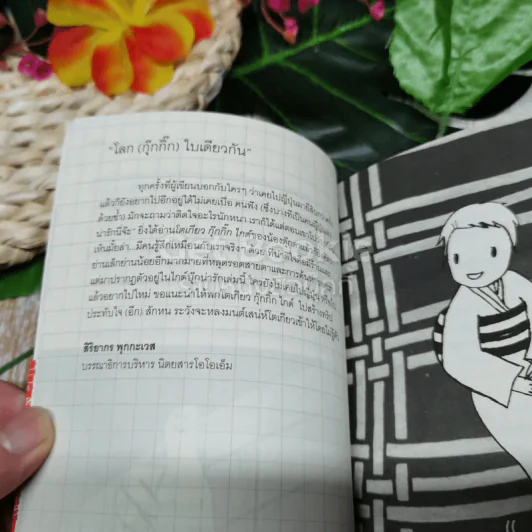 "โลก (กุ๊กกิ๊ก) ใบเดียวกัน"
ทุกครั้งที่ผู้เขียนบอกกับใครๆ ว่าเคยไปญี่ปุ่นมา
แล้วก็ยังอยากไปอีกอยู่ได้ไม่เคยเบื่อ คนฟัง (ซึ่งบางทีเป็นคน
ด้วยซ้ำ) มักจะถามว่าติดใจอะไรนักหนา เราก็ได้แต่ตอบ
น่ารักนี่จ๊ะ" ยิ่งได้อ่านโตเกียว กุ๊กกิ๊ก ไกด์ของน้อง
เห็นมั้ยล่า.. มีคนรู้สึกเหมือนกับเราจริงๆ ด้วย
อ่านเล็กอ่านน้อยอีกมากมายที่หลุดรอดสายตาและการค้น
แต่มาปรากฏตัวอยู่ในไกด์บุ๊กน่ารักเล่มนี้ ใครยังไม่เคยไป
แล้วอยากไปใหม่ ขอแนะนำให้พกโตเกียว กุ๊กกิ๊ก ไกด์ ไปสร้าง
ประทับใจ (อีก) สักหน ระวังจะหลงมนต์เสน่ห์โตเกียวเข้าให้โดยไม่รู้ตัว
สิริยากร พุกกะเวส
บรรณาธิการบริหาร นิตยสารโอโอเอ็ม